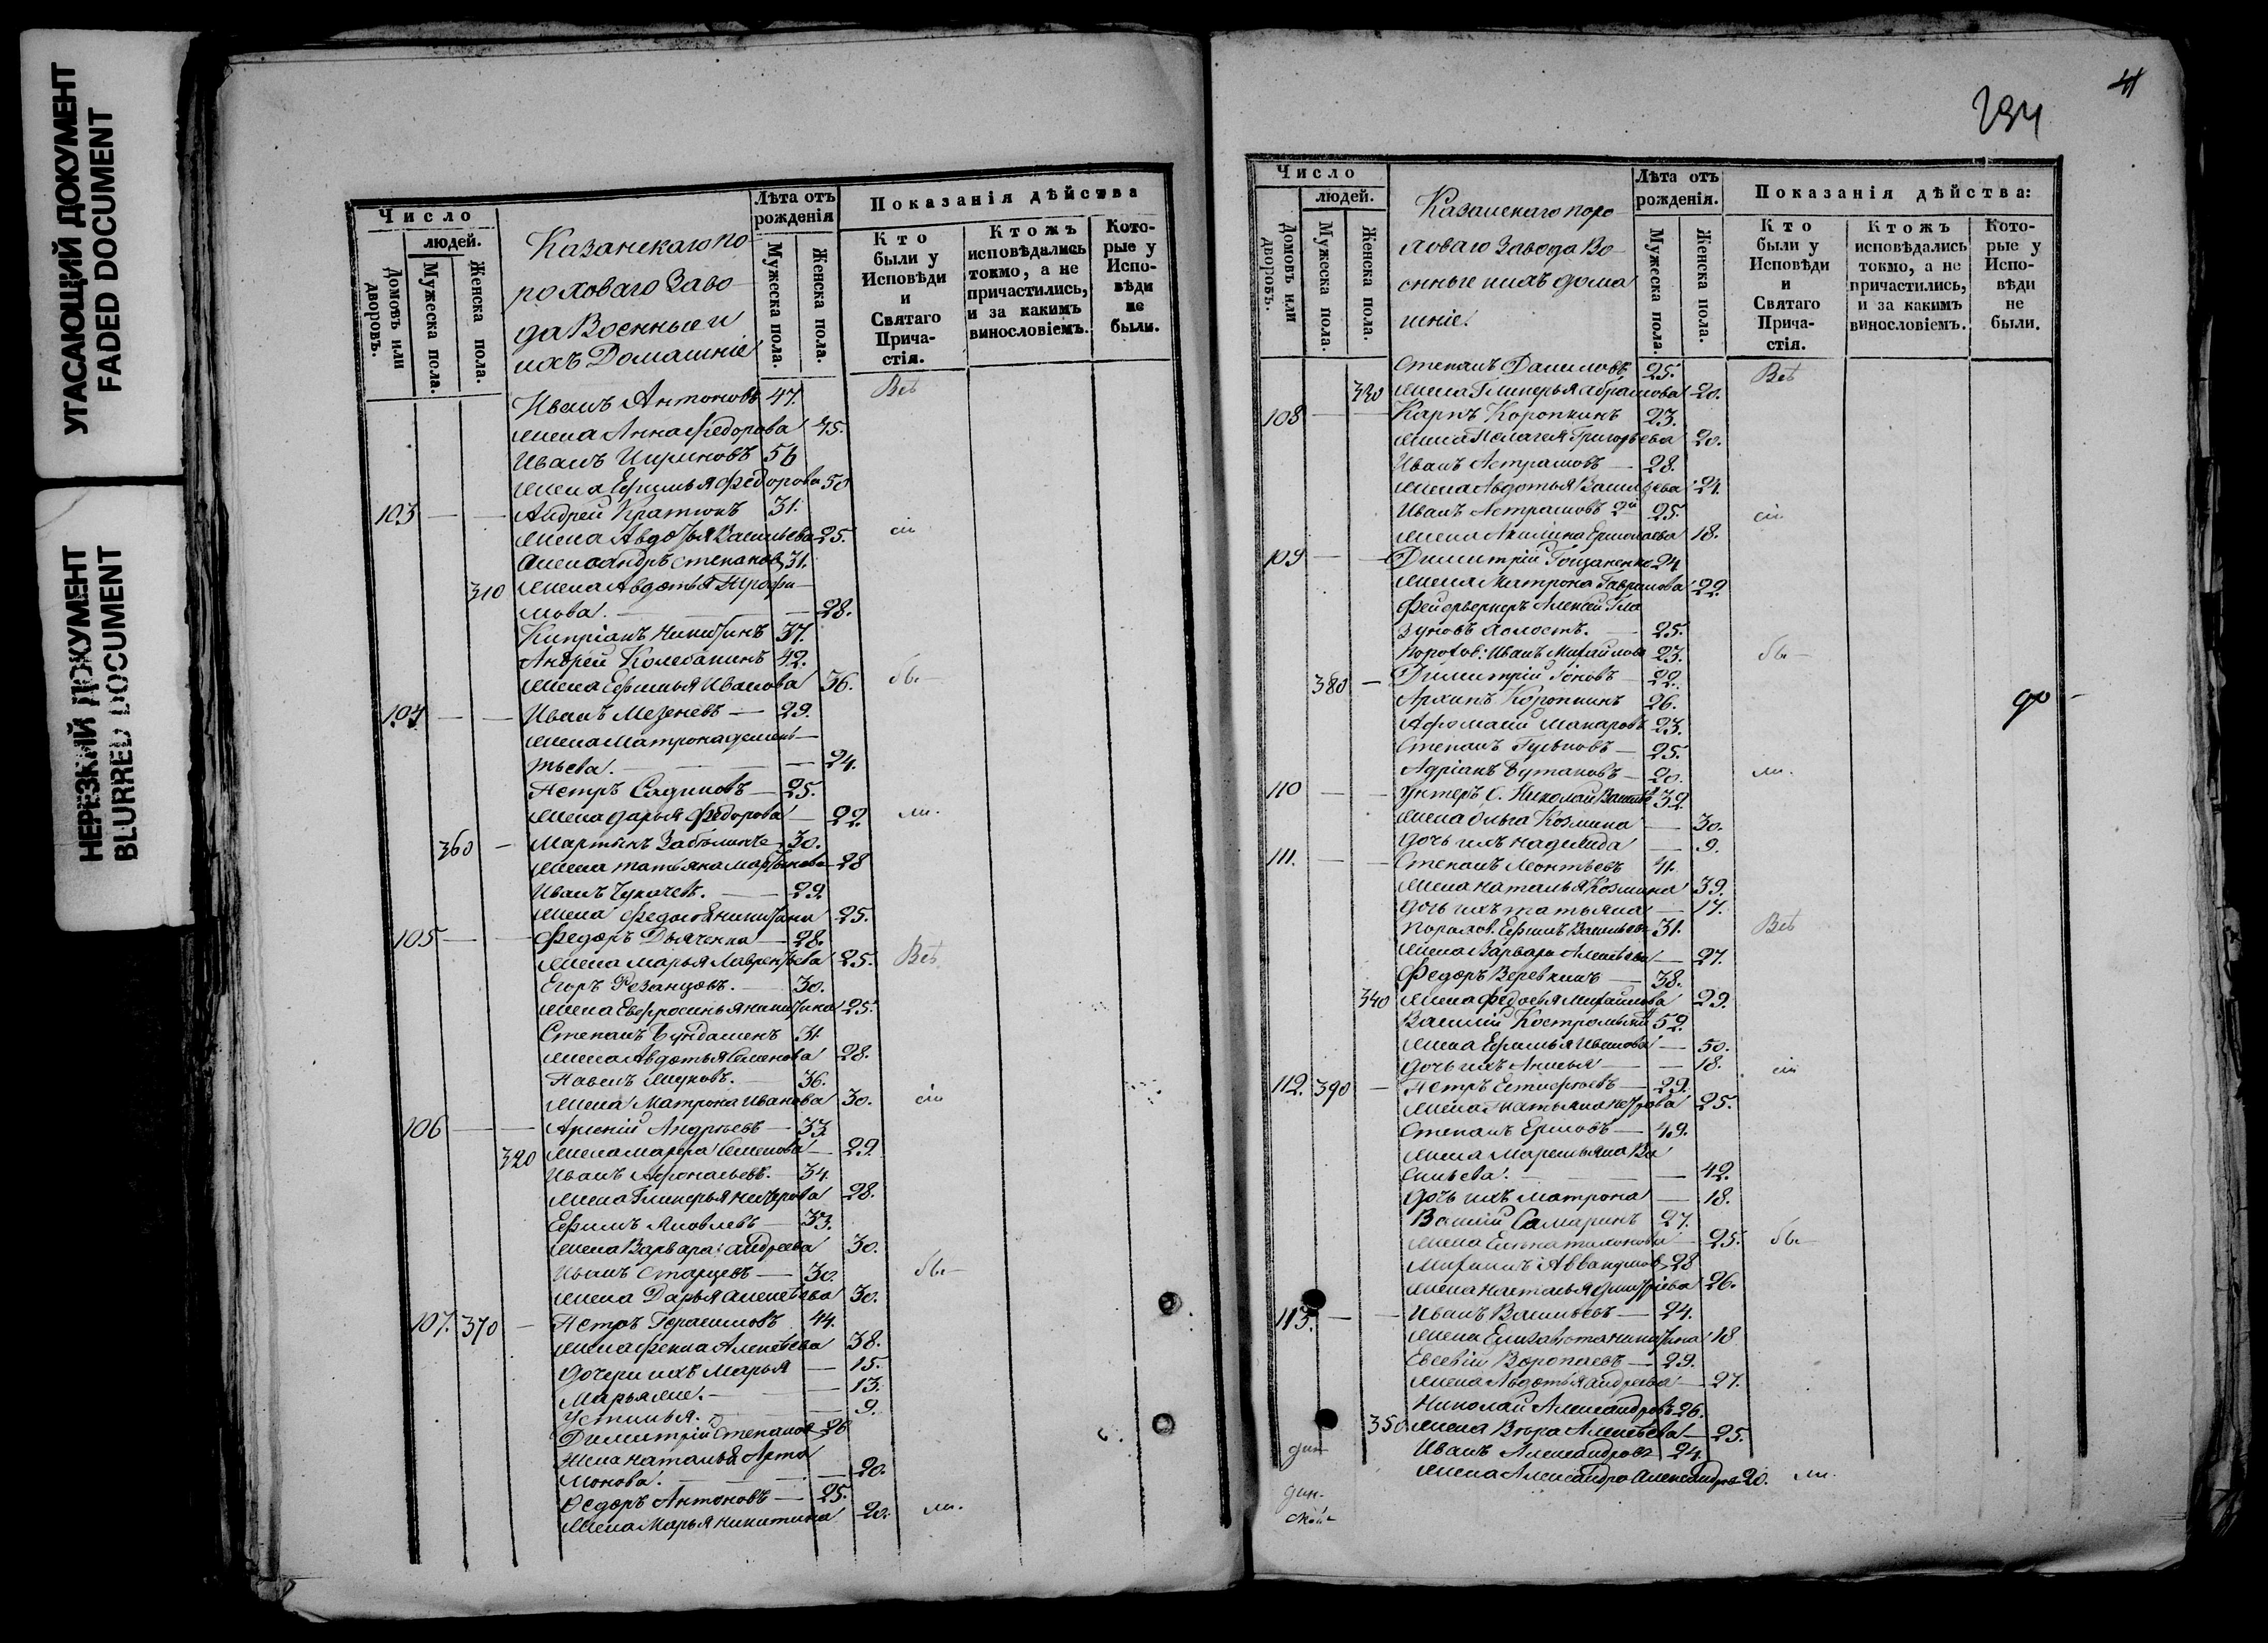 УГАСАЮЩИЙ ДОКУМЕНТ
FADED DOCUMENT
НЕРЕЗКИЙ ДОКУМЕНТ
BLURRED DOCUMENT
Число
людей.
Домовъ или дворовъ.
Мужеска пола.
Женска пола.
Казанскаго по
роховаго Заво
да Военные и
ихъ Домашніе
Лѣта отъ рожденія
Мужеска пола.
Женска пола.
Показанія дѣйства
Кто были у Исповѣди и Святаго Прича-стія.
Ктожъ исповѣдались токмо, а не причастились, и за какимъ винословіемъ.
Кото-рые у Испо-вѣди не были.
Иванъ Антоновъ 47. Всѣ
жена Анна Федорова 45.
Иванъ 56
жена Ефимья Федорова 50
103 Андрей 31.
жена Авдотья Васильева 25. сіи
Александръ Степановъ 31.
310 жена Авдотья Трофи
мова. 28.
Кипріанъ Никитинъ 37.
Андрей Колебакинъ 42.
жена Ефимья Иванова 36. бы
104 Иванъ Мезеневъ 29.
жена Матрона Демен
тьева. 24.
Петръ Садиковъ 25.
жена Дарья Федорова 22. ли.
360 Мартынъ 30.
жена Татьяна Мартынова 28
Иванъ Чукачевъ. 29.
жена Федосья Никитина 25.
105 Федоръ Дьяченка 28.
жена Марья Лаврентьева 25. Всѣ
Егоръ Резанцовъ. 30.
жена Евфросинья Никитина 25.
Степанъ 31.
жена Авдотья Семенова 28.
Павелъ Жуковъ. 36.
жена Матрона Иванова 30. сіи
106 Арсеній Андреевъ 33
320 жена Марфа Семенова 29
Иванъ Афонасьевъ. 34.
жена Гликерья Нестерова 28.
Ефимъ Яковлевъ 33.
жена Варвара Андреева 30.
Иванъ Старцевъ 30. бы
жена Дарья Алексѣева 30.
107. 370 Петръ Герасимовъ 44.
жена Фекла Алексѣева 38.
Дочери ихъ Марья 15.
Марья же. 13.
Устинья. 9.
Димитрій Степановъ 26
жена Наталья Арта
монова. 20.
Федоръ Антоновъ 25.
жена Марья Никитина 20. ли.
41
234
Число
людей.
Домовъ или дворовъ.
Мужеска пола.
Женска пола.
Казанскаго поро
ховаго Завода Во
енные и ихъ дома
шніе.
Лѣта отъ рожденія.
Мужеска пола.
Женска пола.
Показанія дѣйства:
Кто были у Исповѣди и Святаго Прича-стія.
Ктожъ исповѣдались токмо, а не причастились, и за какимъ винословіемъ.
Кото-рые у Испо-вѣди не были.
Степанъ Даниловъ 25. Всѣ
330 жена Гликерья Абрамова 20.
108 Карпъ Коропкинъ 23.
жена Пелагея Григорьева 20.
Иванъ Астрамовъ 28.
жена Авдотья Васильева 24.
Иванъ Астрамовъ 2й 25. сіи
жена Акилина Ермолаева 18.
109 Димитрій Гонзаненко 24
жена Матрона Гаврилова 22.
Фейерверкеръ Алексей Гла
зуновъ холостъ. 25.
Порохов: Иванъ Михайловъ 23. бы
380 Димитрій 22.
Архипъ Коропкинъ 26.
Афонасій Макаровъ 23.
Степанъ Гусьновъ 25.
Адріанъ Бутаковъ 20. ли.
110 Унтеръ О. Николай Васильевъ 32.
жена Ольга Козмина 30.
Дочь ихъ Надежда 9.
111. Степанъ Леонтьевъ 41.
жена Наталья Козмина 39.
Дочь ихъ Татьяна 17.
Порохов. Ефимъ Васильевъ 31. Всѣ
жена Варвара Алексѣева 27.
Федоръ Веревкинъ 38.
340 жена Федосья Михайлова 29.
Василій Костромский 52.
жена Ефимья Иванова 50.
Дочь ихъ Анисья 18. сіи
112. 390 Петръ Естифеевъ 29.
жена Татьяна Петрова 25.
Степанъ Ермовъ 49.
жена Маремьяна Ва
сильева. 42.
Дочь ихъ Матрона 18.
Василій Самаринъ 27.
жена Елена 25. бы
Аввакумовъ 28
жена Наталья Дмитріева 26.
113. Иванъ Васильевъ 24.
жена Елизавета Никитина 18
Евсевій Воропаевъ 29.
жена Авдотья Андреева 27.
Николай Александровъ 26.
350 жена Вѣра Алексѣева 25.
Иванъ Александровъ 24.
жена Александра Александрова 20. ли.